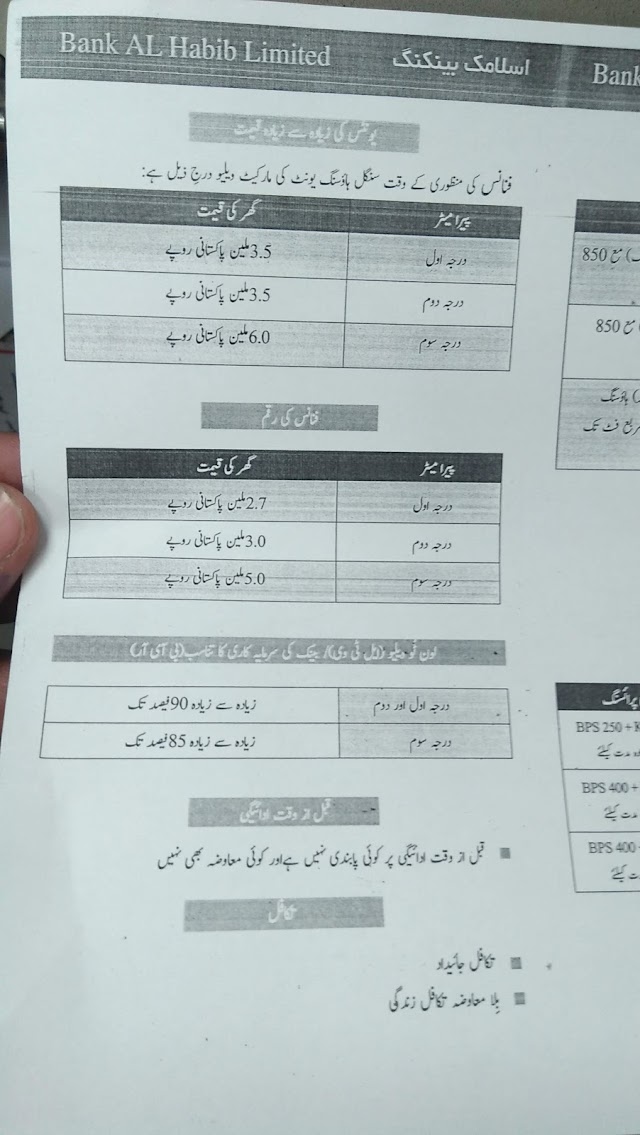 Bank AL Habib Limited
اسلامک بینکنگ
یونٹس کی زیادہ سے زیادہ قیمت
فنانس کی منظوری کے وقت سنگل ہاؤسنگ یونٹ کی مارکیٹ ویلیو درج ذیل ہے:
پیرامیٹر گھر کی قیمت
درجہ اول 3.5 ملین پاکستانی روپے
درجہ دوم 3.5 ملین پاکستانی روپے
درجہ سوم 6.0 ملین پاکستانی روپے
فنانس کی رقم
پیرامیٹر گھر کی قیمت
درجہ اول 2.7 ملین پاکستانی روپے
درجہ دوم 3.0 ملین پاکستانی روپے
درجہ سوم 5.0 ملین پاکستانی روپے
لون ٹو ویلیو (ایل ٹی وی)/ بینک کی سرمایہ کاری کا تناسب (بی آئی آر)
درجہ اول اور دوم زیادہ سے زیادہ 90 فیصد تک
درجہ سوم زیادہ سے زیادہ 85 فیصد تک
قبل از وقت ادائیگی
قبل از وقت ادائیگی پر کوئی پابندی نہیں ہے اور کوئی معاوضہ بھی نہیں
تکافل
تکافل جائیداد
بلا معاوضہ تکافل زندگی
Bank
مع 850
مع 850
ہاؤسنگ
مربع فٹ تک
پرائسنگ
BPS 250 + K
مدت کیلئے
BPS 400 +
مدت کیلئے
BPS 400
کیلئے